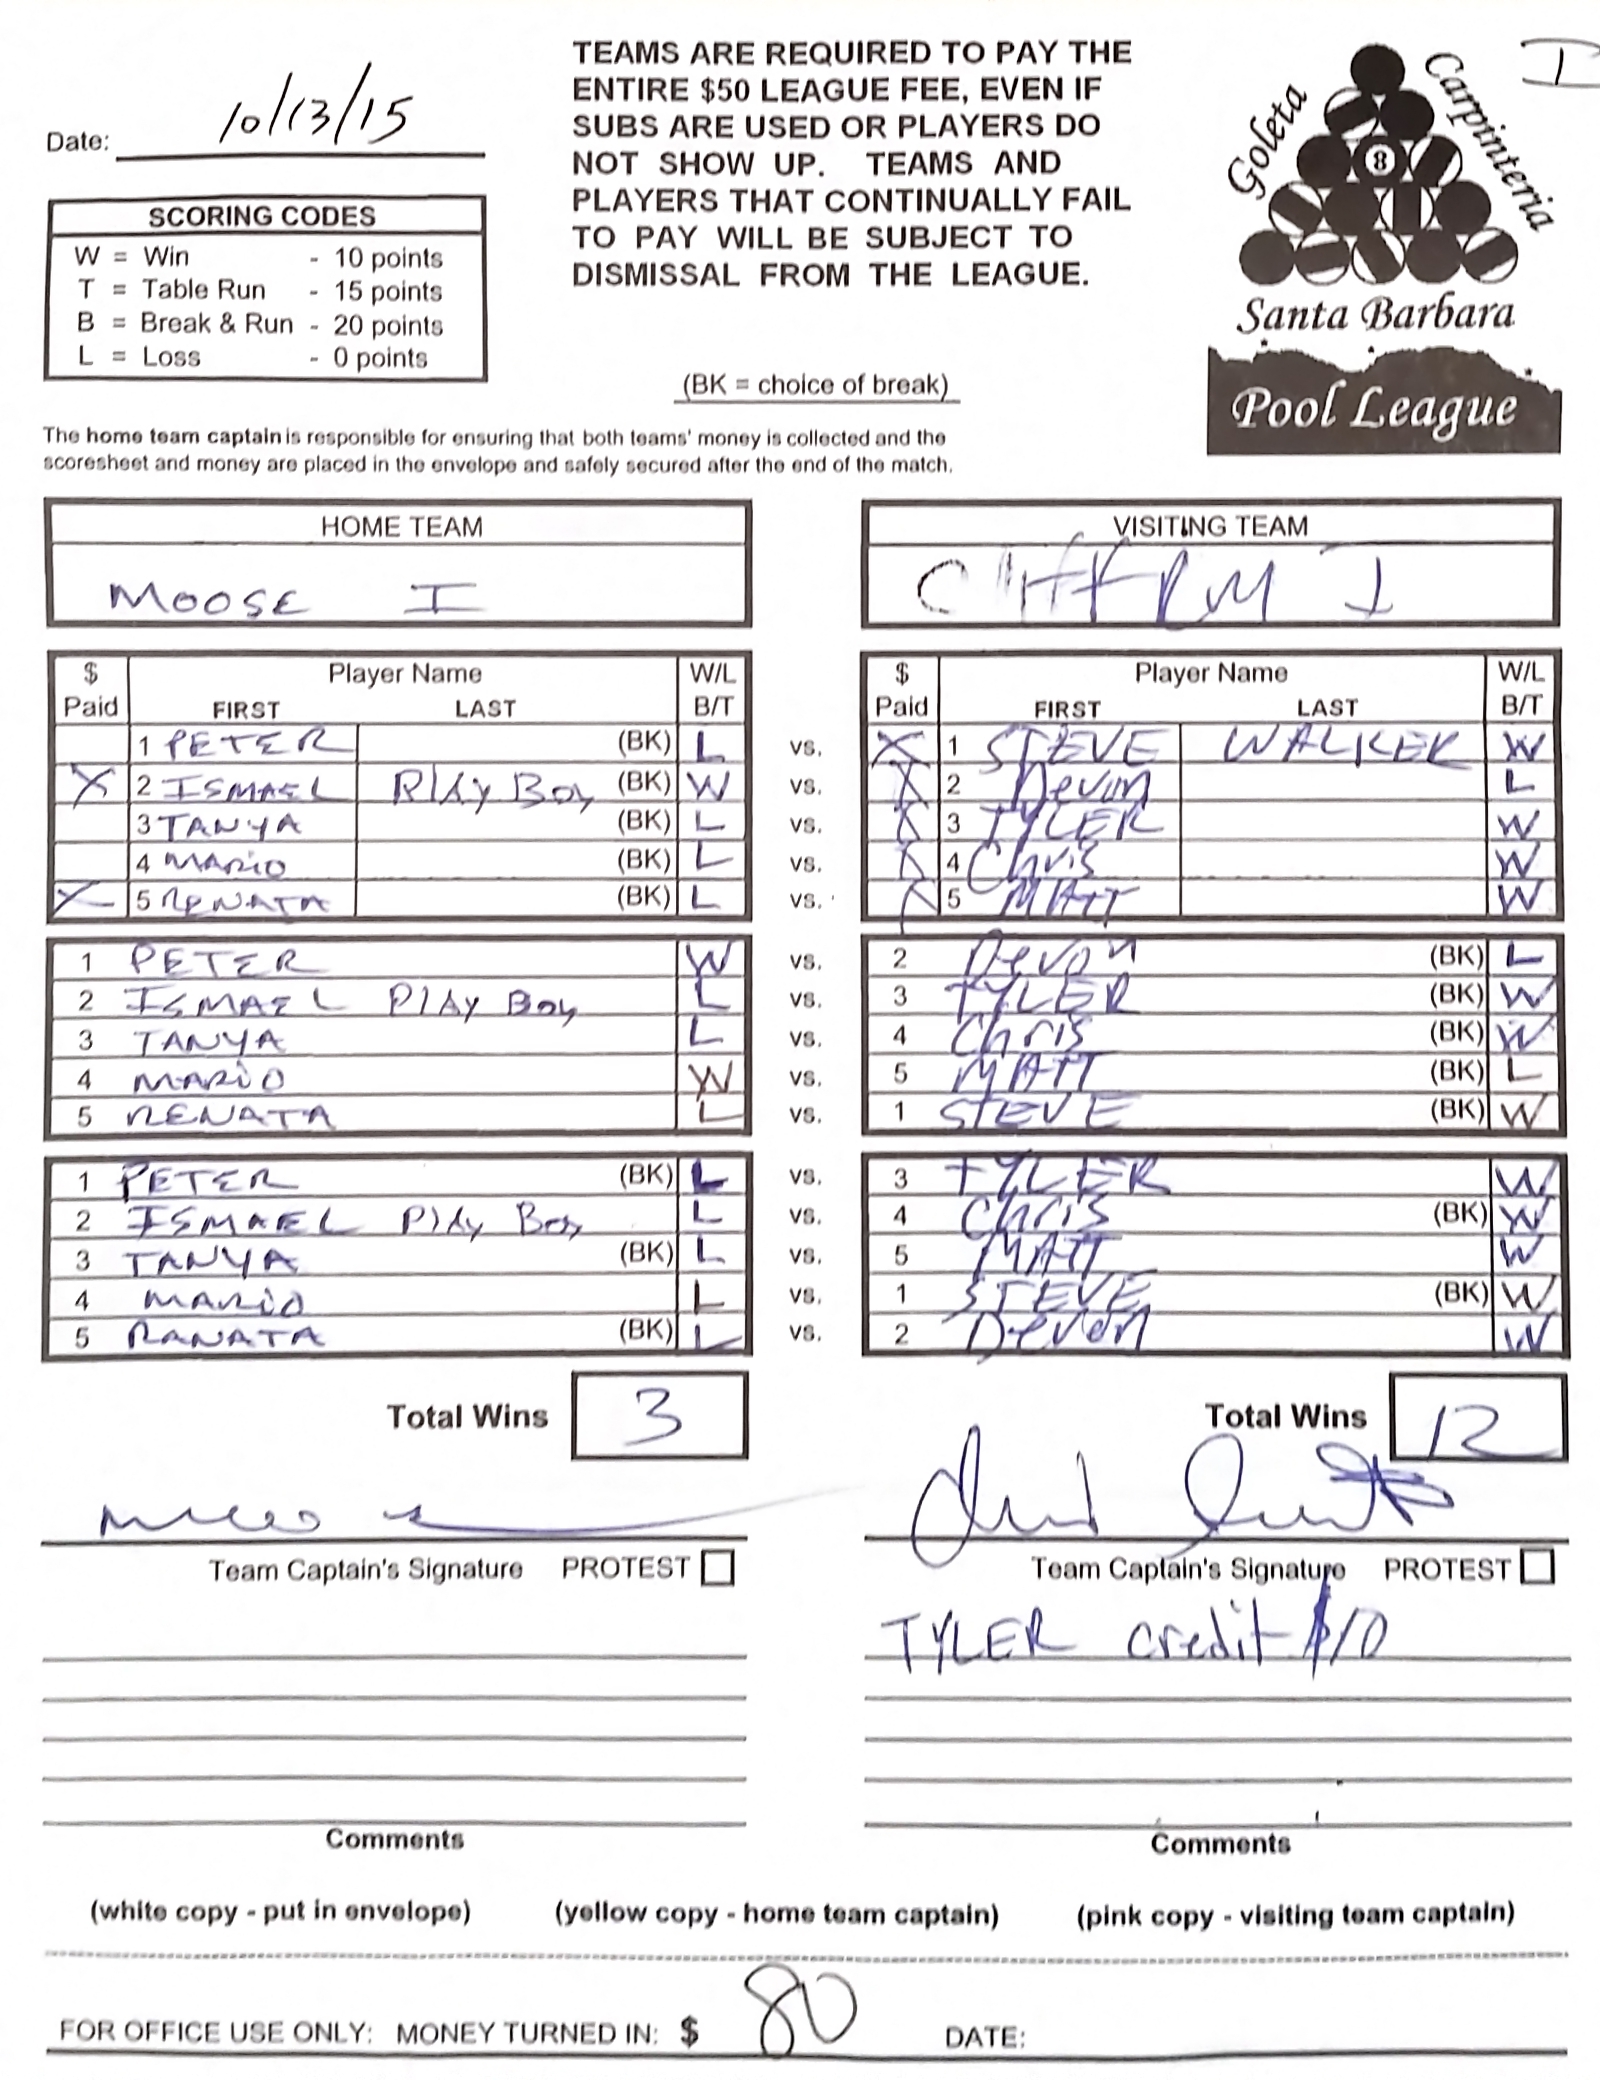 I
Date: 10/13/15
TEAMS ARE REQUIRED TO PAY THE
ENTIRE $50 LEAGUE FEE, EVEN IF
SUBS ARE USED OR PLAYERS DO
NOT SHOW UP. TEAMS AND
PLAYERS THAT CONTINUALLY FAIL
TO PAY WILL BE SUBJECT TO
DISMISSAL FROM THE LEAGUE.
Goleta Carpinteria
8
Santa Barbara
Pool League
SCORING CODES
W = Win - 10 points
T = Table Run - 15 points
B = Break & Run - 20 points
L = Loss - 0 points
(BK = choice of break)
The home team captain is responsible for ensuring that both teams' money is collected and the
scoresheet and money are placed in the envelope and safely secured after the end of the match.
HOME TEAM VISITING TEAM
MOOSE I
$ Paid Player Name FIRST LAST W/L B/T $ Paid Player Name FIRST LAST W/L B/T
1 PETER (BK) L vs. X 1 STEVE WALKER W
X 2 ISMAEL PlAy Boy (BK) W vs. X 2 Devon L
3 TANYA (BK) L vs. X 3 TYLER W
4 MARIO (BK) L vs. X 4 Chris W
X 5 RENATA (BK) L vs. X 5 MATT W
1 PETER W vs. 2 Devon (BK) L
2 ISMAEL PlAy Boy L vs. 3 TYLER (BK) W
3 TANYA L vs. 4 Chris (BK) W
4 MARIO W vs. 5 MATT (BK) L
5 RENATA L vs. 1 STEVE (BK) W
1 PETER (BK) L vs. 3 TYLER W
2 ISMAEL PlAy Boy L vs. 4 Chris (BK) W
3 TANYA (BK) L vs. 5 MATT W
4 MARIO L vs. 1 STEVE (BK) W
5 RANATA (BK) L vs. 2 Devon W
Total Wins 3 Total Wins 12
Team Captain's Signature PROTEST Team Captain's Signature PROTEST
TYLER credit $10
Comments Comments
(white copy - put in envelope) (yellow copy - home team captain) (pink copy - visiting team captain)
FOR OFFICE USE ONLY: MONEY TURNED IN: $ 80 DATE: